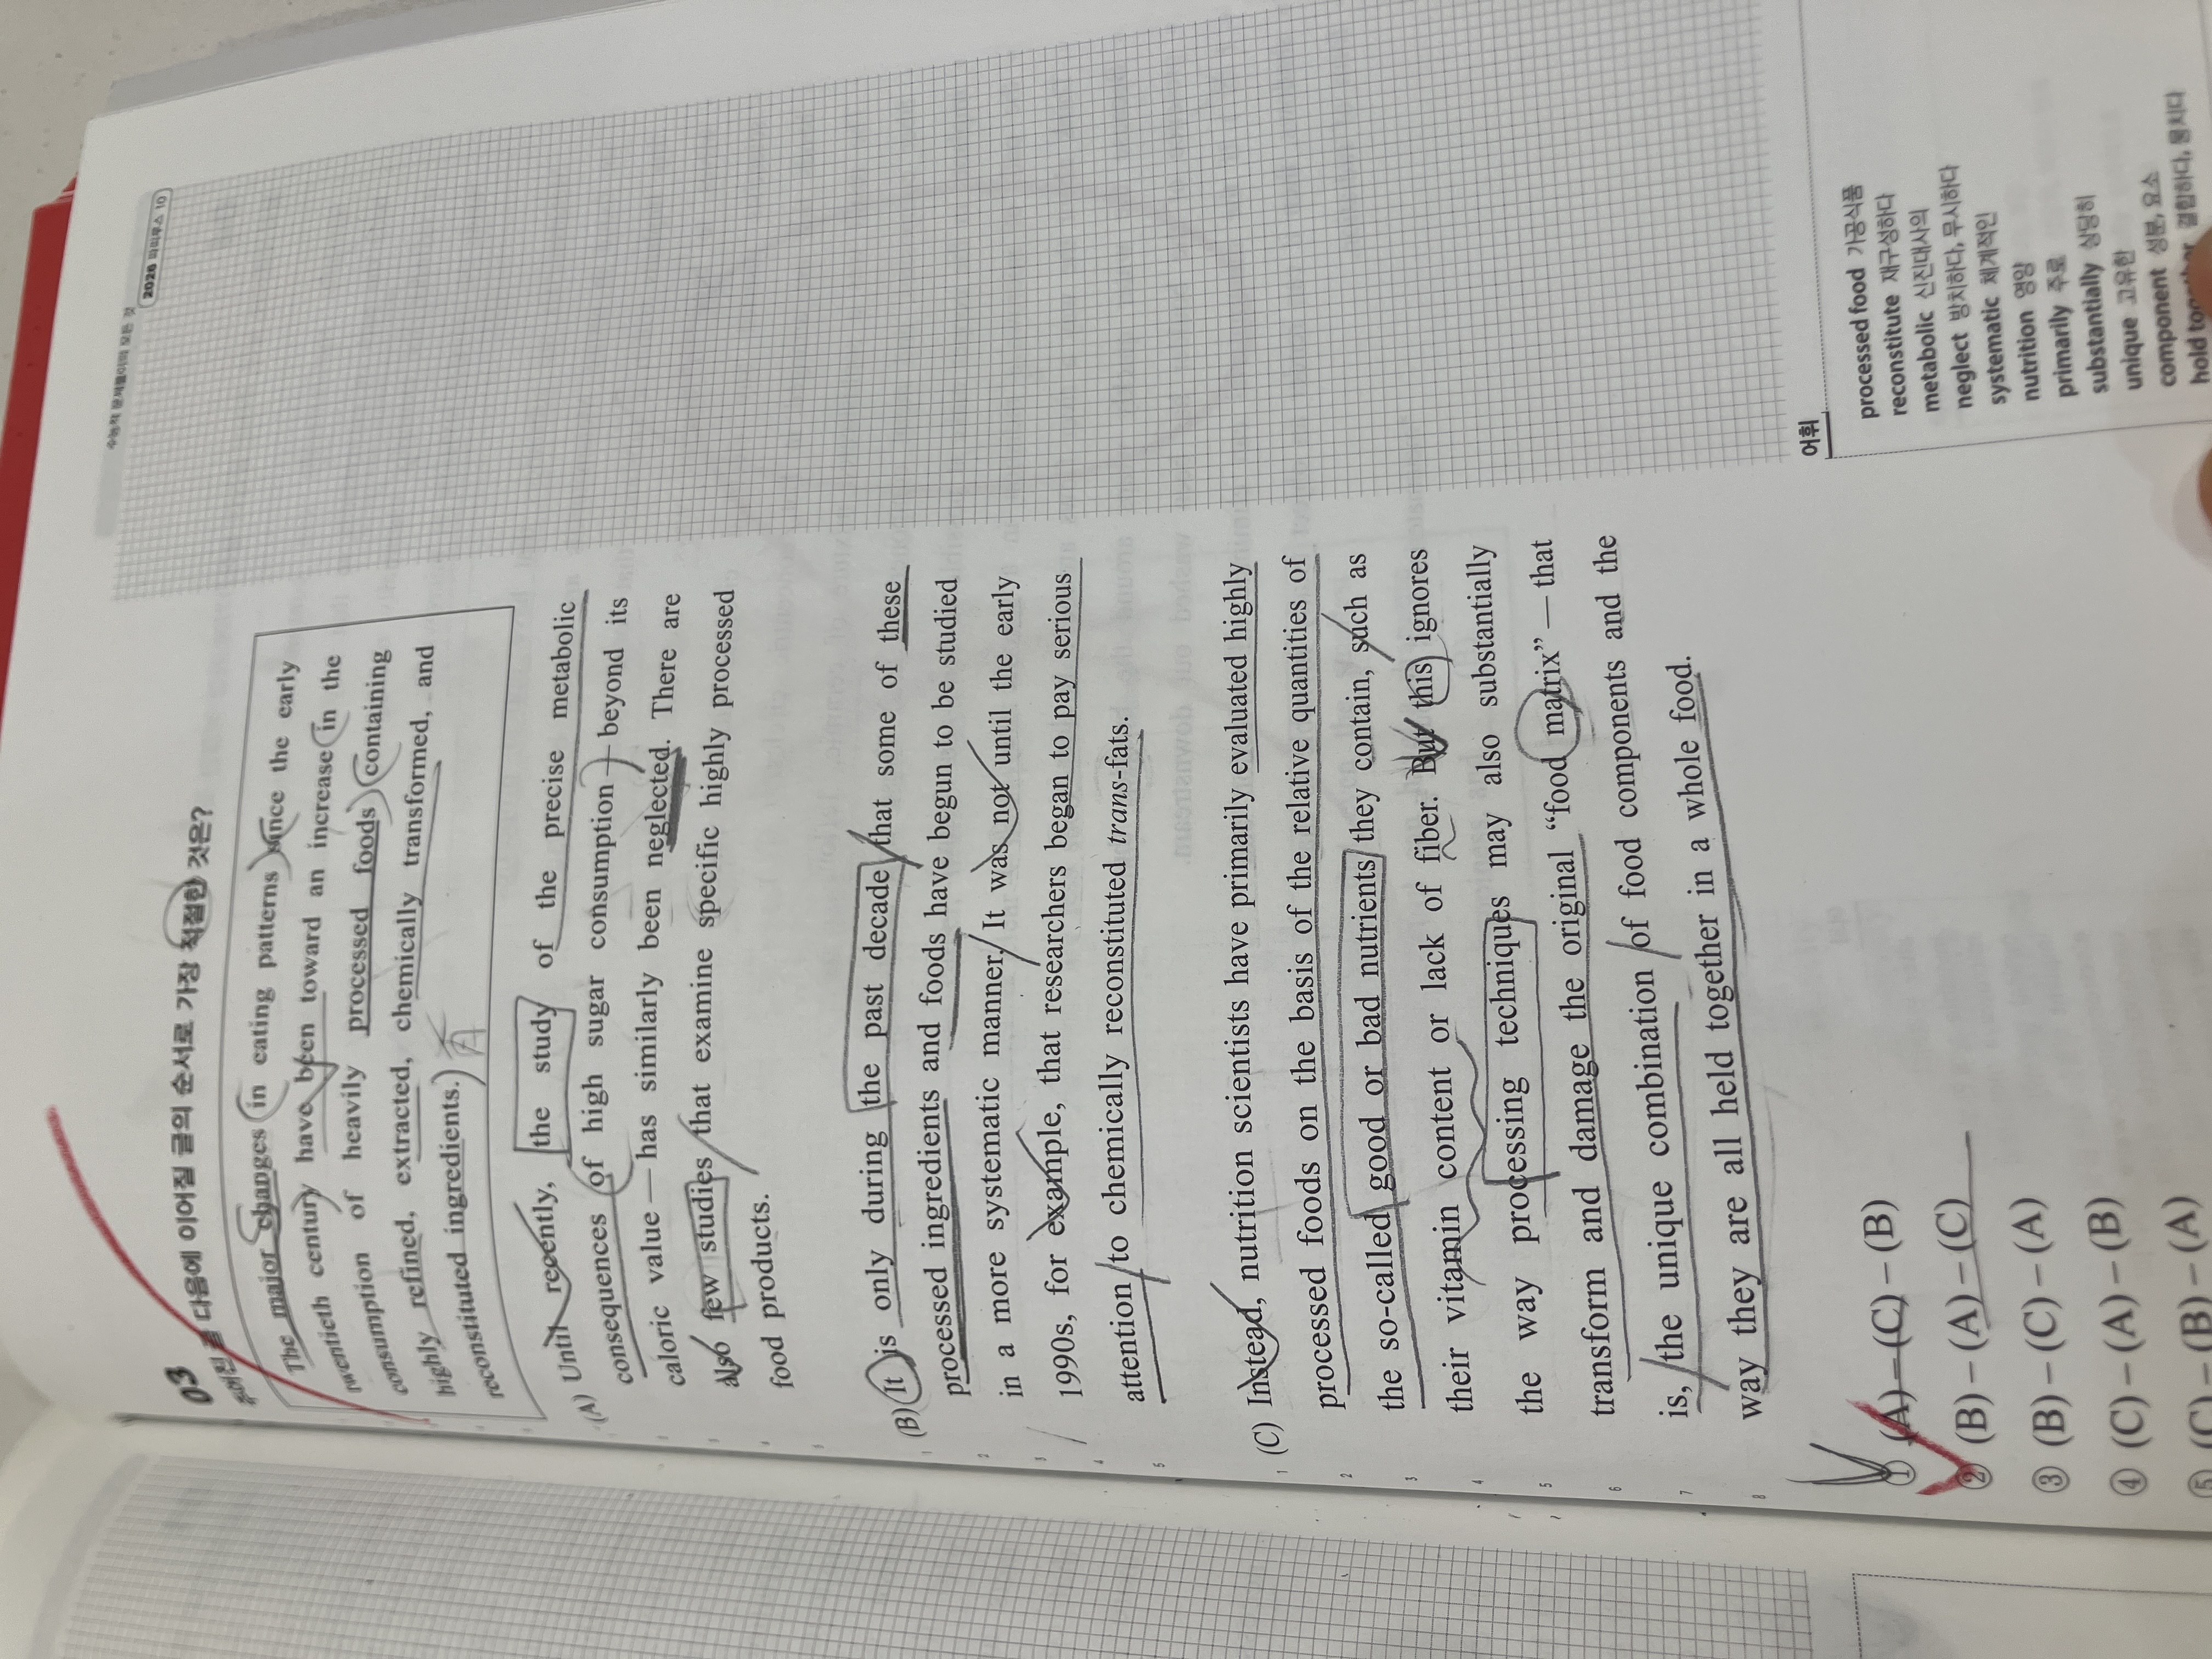 수능적 문제풀이의 모든 것
2026
03
다음에 이어질 글의 순서로 가장 적절한 것은?
The major changes in eating patterns since the early
twentieth century have been toward an increase in the
consumption of heavily processed foods containing
highly refined, extracted, chemically transformed, and
reconstituted ingredients.
(A) Until recently, the study of the precise metabolic
consequences of high sugar consumption — beyond its
caloric value — has similarly been neglected. There are
also few studies that examine specific highly processed
food products.
(B) It is only during the past decade that some of these
processed ingredients and foods have begun to be studied
in a more systematic manner. It was not until the early
1990s, for example, that researchers began to pay serious
attention to chemically reconstituted trans-fats.
(C) Instead, nutrition scientists have primarily evaluated highly
processed foods on the basis of the relative quantities of
the so-called good or bad nutrients they contain, such as
their vitamin content or lack of fiber. But this ignores
the way processing techniques may also substantially
transform and damage the original “food matrix” — that
is, the unique combination of food components and the
way they are all held together in a whole food.
① (A) – (C) – (B)
② (B) – (A) – (C)
③ (B) – (C) – (A)
④ (C) – (A) – (B)
⑤ (C) – (B) – (A)
어휘
processed food 가공식품
reconstitute 재구성하다
metabolic 신진대사의
neglect 방치하다, 무시하다
systematic 체계적인
nutrition 영양
primarily 주로
substantially 상당히
unique 고유한
component 성분, 요소
hold together 결합하다, 뭉치다